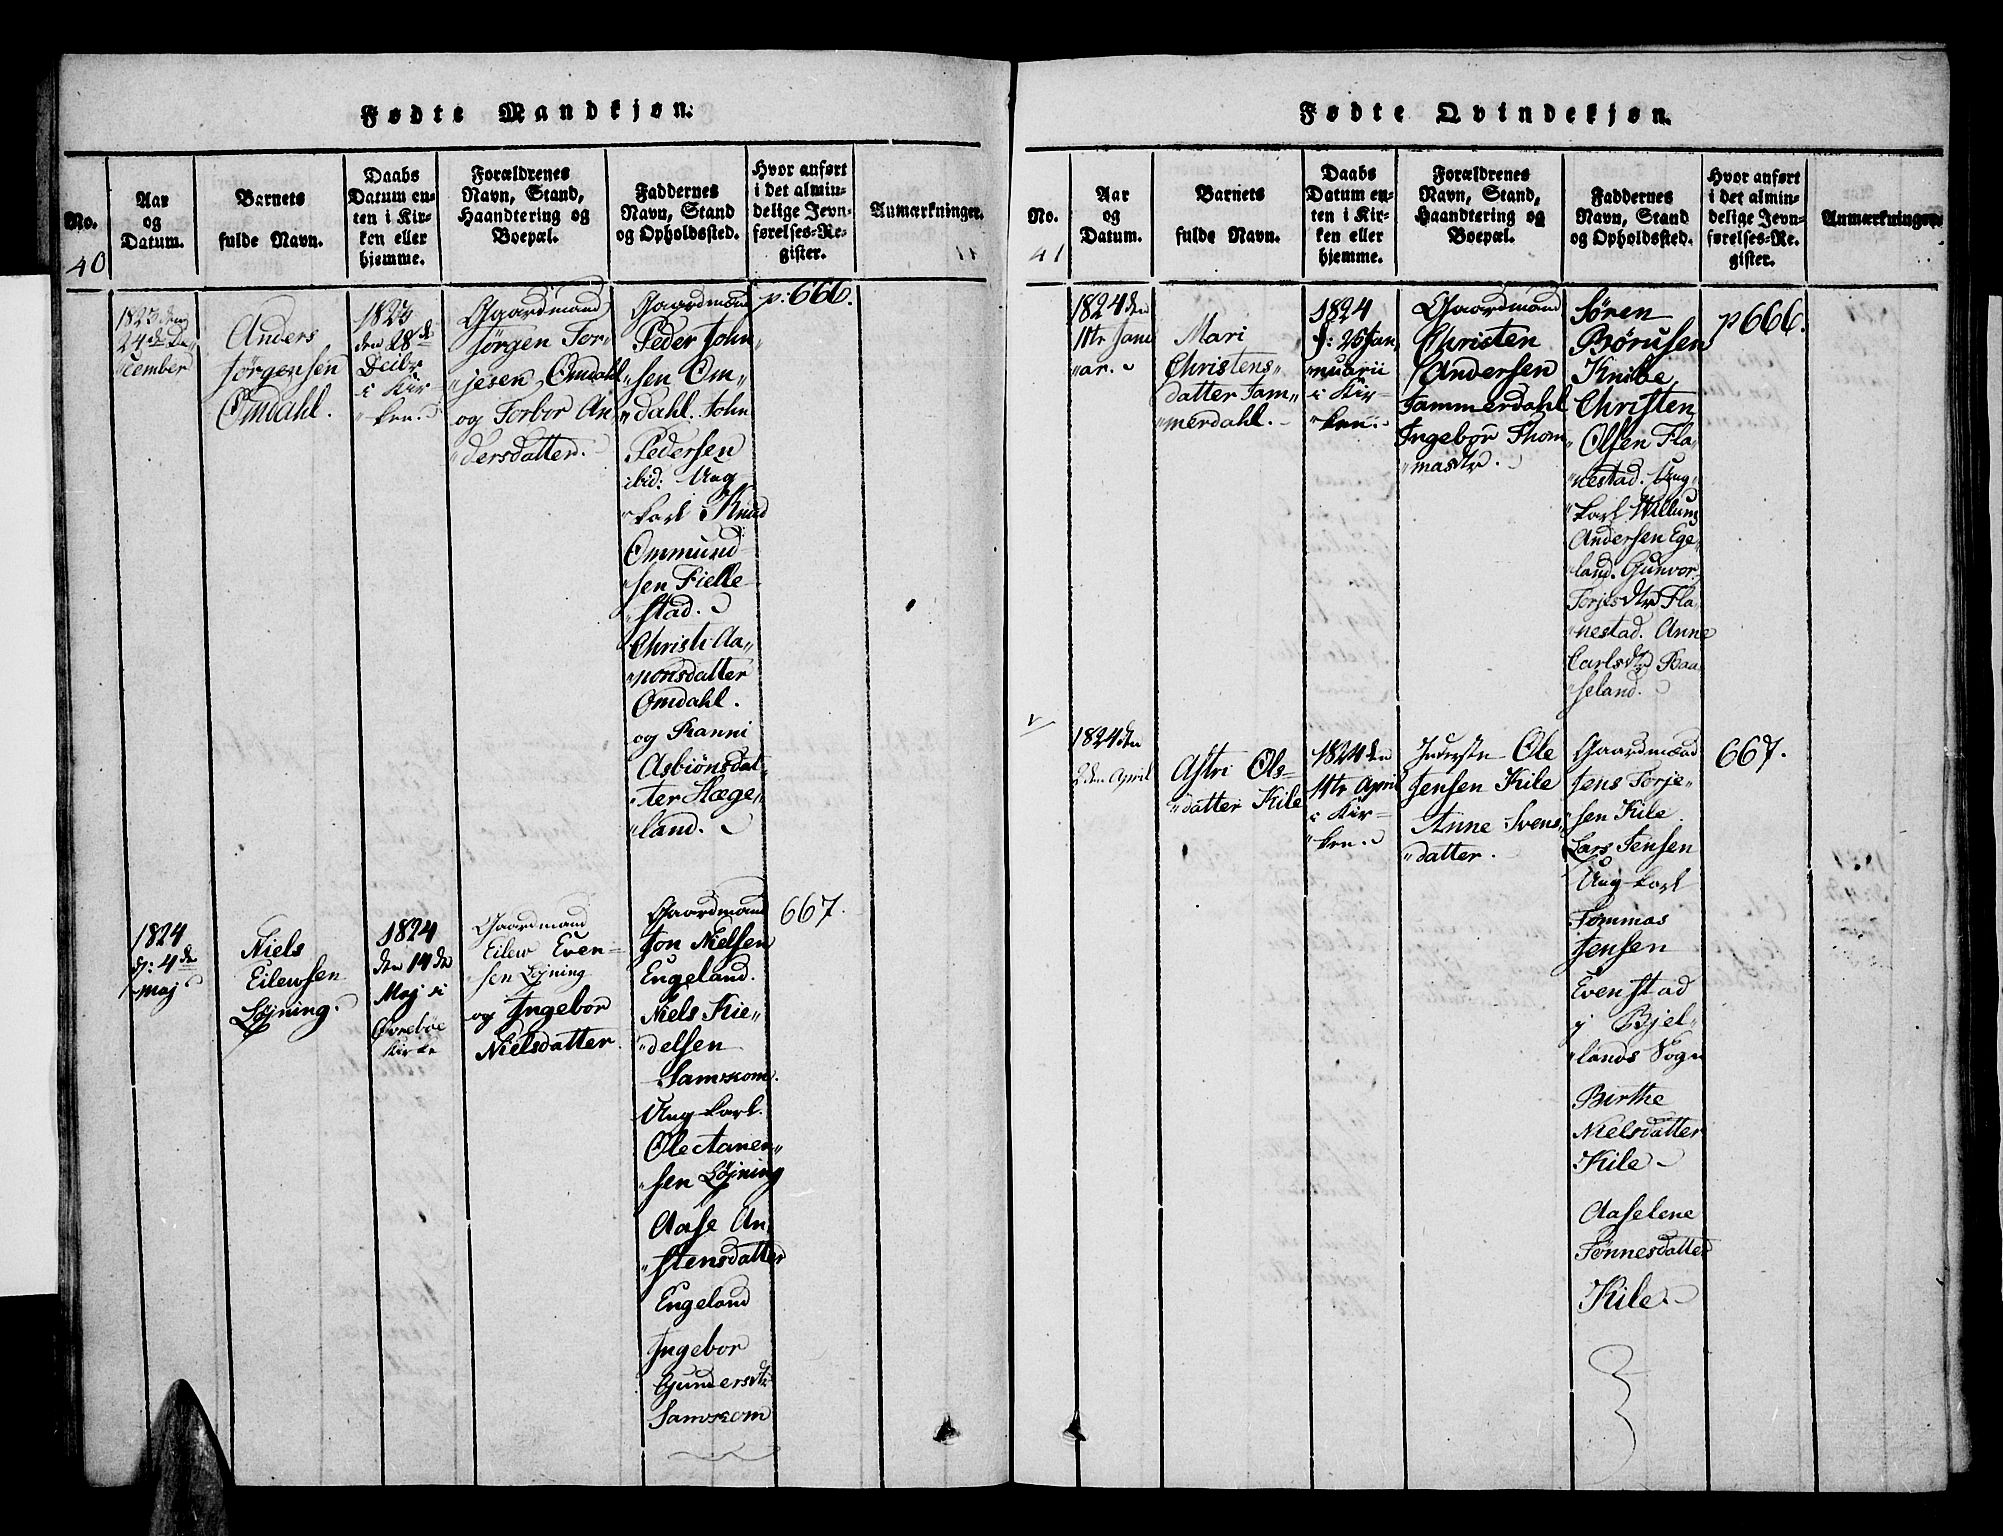 Fødte Mandkjøn.
No.
40
Aar
og
Datum.
Barnets
fulde Navn.
Daabs
Datum en-
ten i Kir-
ken eller
hjemme.
Forældrenes
Navn, Stand,
Haandtering og
Boepæl.
Faddernes
Navn, Stand
og Opholdssted.
Hvor anført
i det almin-
delige Jevn-
førelses-Re-
gister.
Anmærkninger.
1823 den
24de De„
cember
Anders
Jörgensen
Omdahl.
1823
den 28de
Decbr
i Kir-
ken.
Gaardmand
Jörgen Tor-
„jesen Omdahl
og Torbor An-
„dersdatter.
Gaardmænd
Peder John„
„sen Om„
„dahl. John
Pedersen
ibid: Ung
„karl Knud
Ommund-
„sen Fielle-
„stad.
Christi Aa„
„nonsdatter
Omdahl.
og Ranni
Asbiönsdat„
„ter Hæge„
„land.
p. 666.
1824
d: 4de
Maj
Niels
Eilewsen
Løjning.
1824
den 14de
Maj i
Øvrebøe
Kirke
Gaardmand
Eilew Even-
sen Løjning
og Ingebor
Nielsdatter.
Gaardmænd
Jon Nielsen
Engeland.
Niels Kie„
„delsen
Samkom.
Ung karl.
Ole Aanen„
„sen Løjning
Aase An
„stensdatter
Engeland
Ingebor
Gundersdtr
Samkom
667.
Fødte Qvindekjøn.
No.
41
Aar
og
Datum.
Barnets
fulde Navn.
Daabs
Datum en-
ten i Kir-
ken eller
hjemme.
Forældrenes
Navn, Stand,
Haandtering og
Boepæl.
Faddernes
Navn, Stand
og Opholdssted.
Hvor anført
i det almin-
delige Jevn-
førelses-Re-
gister.
Anmærkninger.
1824 den
11te Janu
„ar.
Mari
Christens„
datter Tam„
„merdahl.
1824
d: 25 Jan„
„nuarii
i Kir-
„ken.
Gaardmand
Christen
Andersen
Tammerdahl
Ingebor Thom
„masdtr.
Sören
Börusen
Knibe
Christen
Olsen Fla„
„nestad. Ung„
„karl Willum
Andersen Ege„
„land. Gunvor
Torjesdtr Fla„
„nestad. Anne
Carlsdtr Raa„
„seland.
p 666.
1824 den
2den April
Astri Ols-
„datter Kile
1824 den
11te April
i Kir-
„ken.
Inderste Ole
Jensen Kile
Anne Svens„
„datter.
Gaardmænd
Jens Torje-
„sen Kile.
Lars Jensen
Ung karl
Tommas
Jensen
Evenstad
i Bjel„
„lands Sogn
Birthe
Nielsdatter
Kile
Aaselene
Tønnesdatter
Kile.
667.